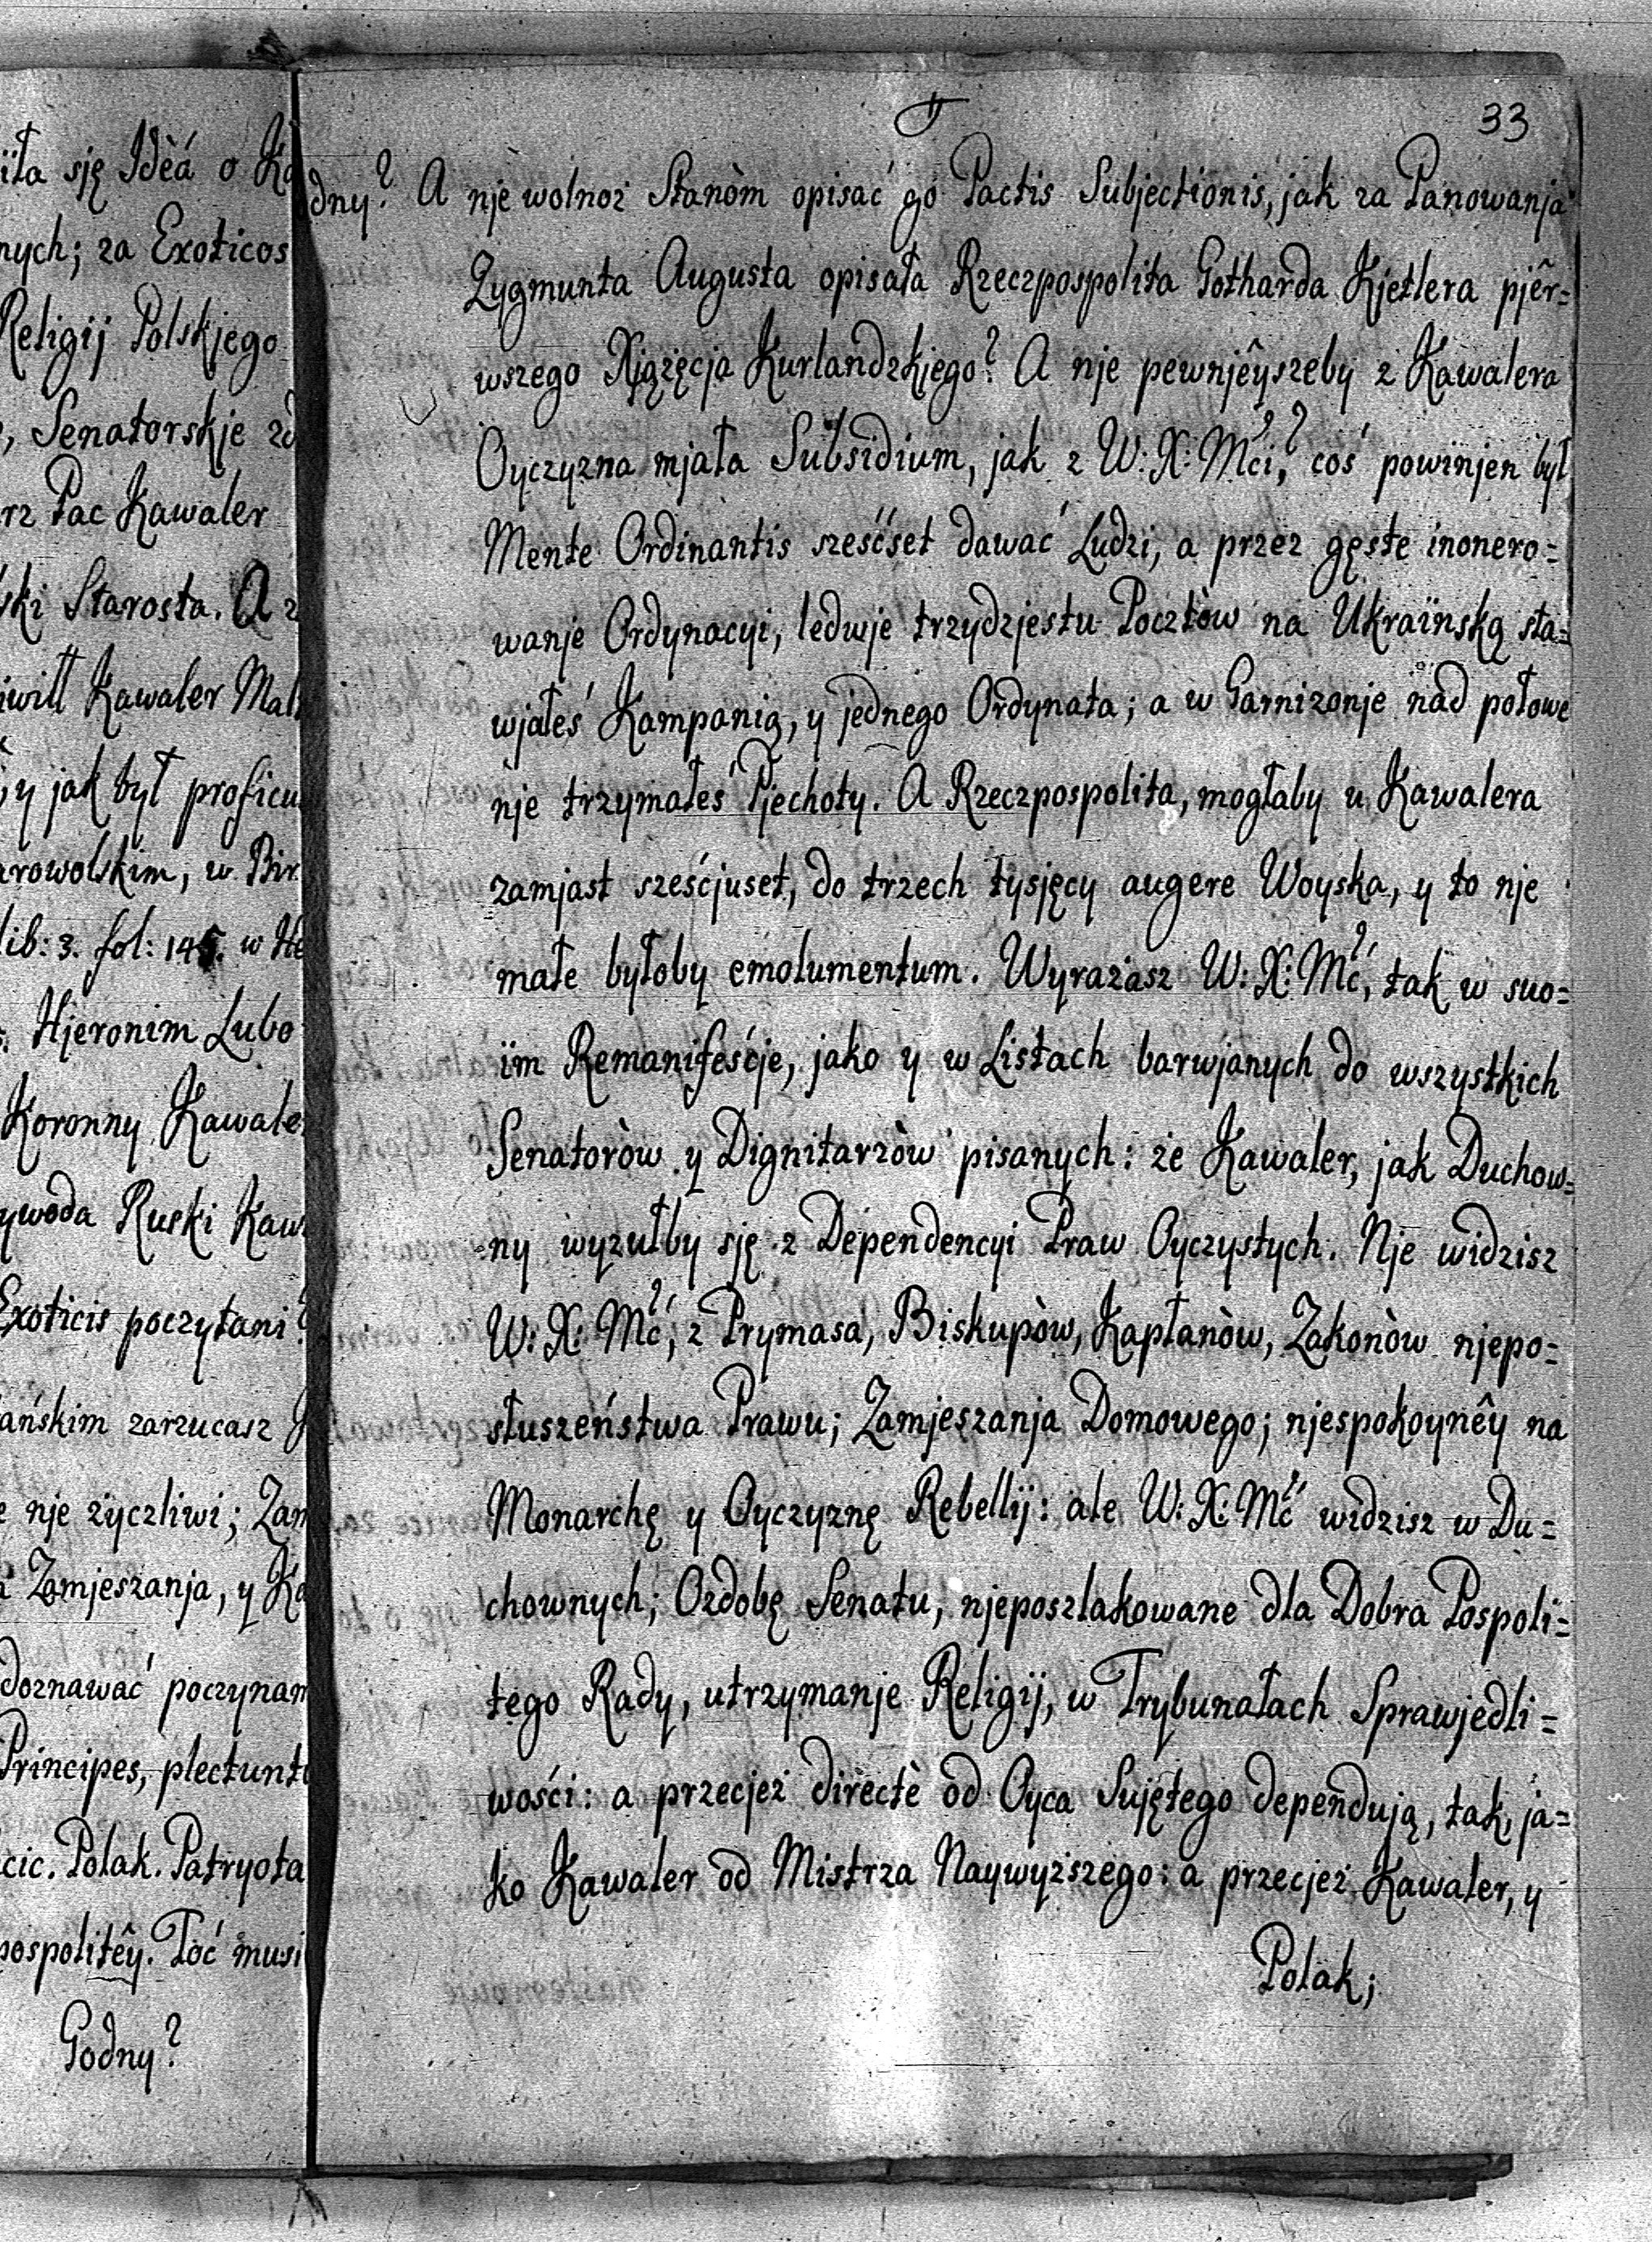 iła się Idèá o Ka
nych; za Exoticos
Religij Polskjego
, Senatorskje zd
rz Pac Kawaler
ski Starosta. A z
iwiłł Kawaler Mal
y jak był proficu
arowolskim, w Bir
lib: 3. fol: 145. w He
Hjeronim Lubo
Koronny Kawale
ywoda Ruski Kaw
Exoticis poczytani?
ańskim zarzucasz
e nje życzliwi; Zam
Zamjeszanja, y Ka
doznawać poczynam
Principes, plectunt
cic. Polak. Patryota
pospolitêy. Toć musi
Godny?
33
dny? A nje wolnoż Stanòm opisać go Pactis Subjectionis, jak za Panowanja
Zygmunta Augusta opisała Rzeczpospolita Gotharda Kjetlera pjêr=
wszego Xjążęcja Kurlandzkjego? A nje pewnjêyszeby z Kawalera
Oyczyzna mjała Subsidium, jak z W: X: Mci? coś powinjen był
Mente Ordinantis sześćset dawać Ludzi, a przez gęste inonero=
wanje Ordynacyi, ledwje trzydzjestu Pocztòw na Ukraïnską sta=
wjałeś Kampanią, y jednego Ordynata; a w Garnizonje nad połowe
nje trzymałeś Pjechoty. A Rzeczpospolita, mogłaby u Kawalera
zamjast sześcjuset, do trzech tysjęcy augere Woyska, y to nje
małe byłoby emolumentum. Wyrażasz W: X: Mć, tak w swo=
ïm Remanifeścje, jako y w Listach barwjanych do wszystkich
Senatoròw y Dignitarzòw pisanych: że Kawaler, jak Duchow=
ny wyzułby sję z Dependencyi Praw Oyczystych. Nje widzisz
W: X: Mć, z Prymasa, Biskupòw, Kapłanòw, Zakonòw njepo=
słuszeństwa Prawu; Zamjeszanja Domowego; njespokoynêy na
Monarchę y Oyczyznę Rebellij: ale W: X: Mć widzisz w Du=
chownych; Ozdobę Senatu, njeposzlakowane dla Dobra Pospoli=
tego Rady, utrzymanje Religij, w Trybunałach Sprawjedli=
wości: a przecjeż directè od Oyca Sujętego dependują, tak, ja=
ko Kawaler od Mistrza Naywyższego: a przecjeż Kawaler, y
Polak;